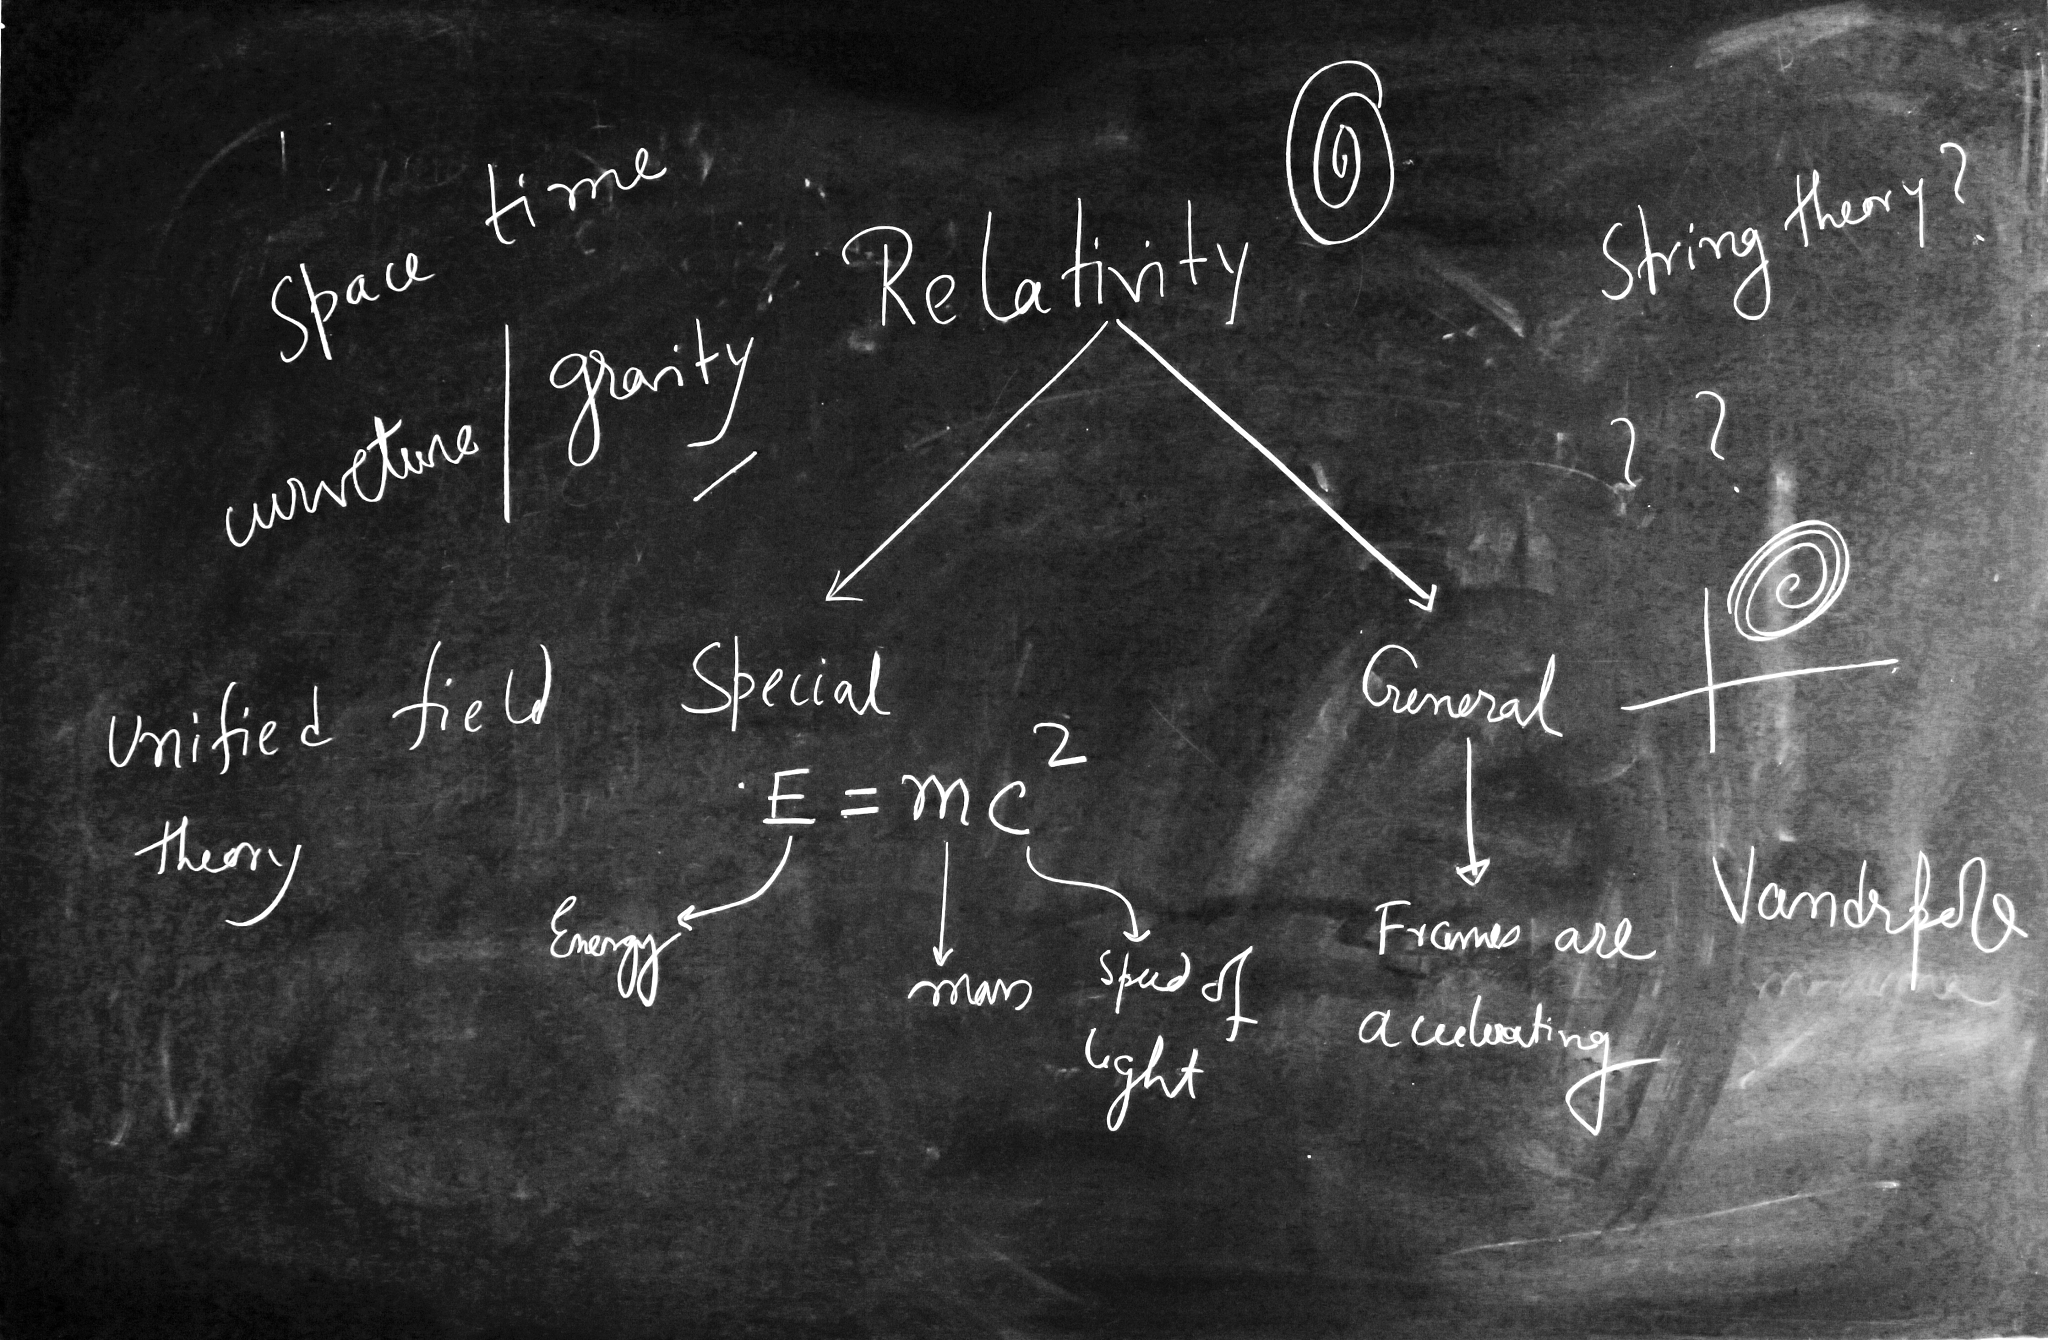 Space time
curveture | gravity
Relativity
String theory?
? ?
Unified field
theory
Special
General
E = mc²
Energy
mass
Speed of
light
Frames are
accelerating
Vanderpole